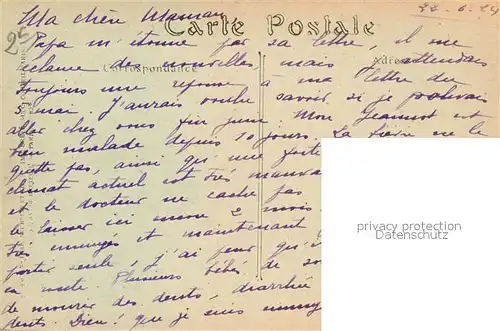 22-6-24
Ma chère Maman
25
Carte Postale
Papa m'étonne par sa lettre, il me
réclame des nouvelles mais attendais
Correspondance
Adresse
toujours une réponse à ma lettre du
5 mai. J'aurais voulu savoir si je pouvais
aller chez vous fin juin. Mon Jeannot est
bien malade depuis 10 jours. La fièvre ne le
quitte pas, ainsi qu'une forte
climat actuel est très mauva
et le docteur ne cache pas
le laisser ici encore 2 mois.
très ennuyée et maintenant
partir seule, j'ai peur qu'i
en route. Plusieurs bébés de so
de mourir des dents, diarrhée
dents. Dieu! que je suis ennuy
privacy protection
Datenschutz